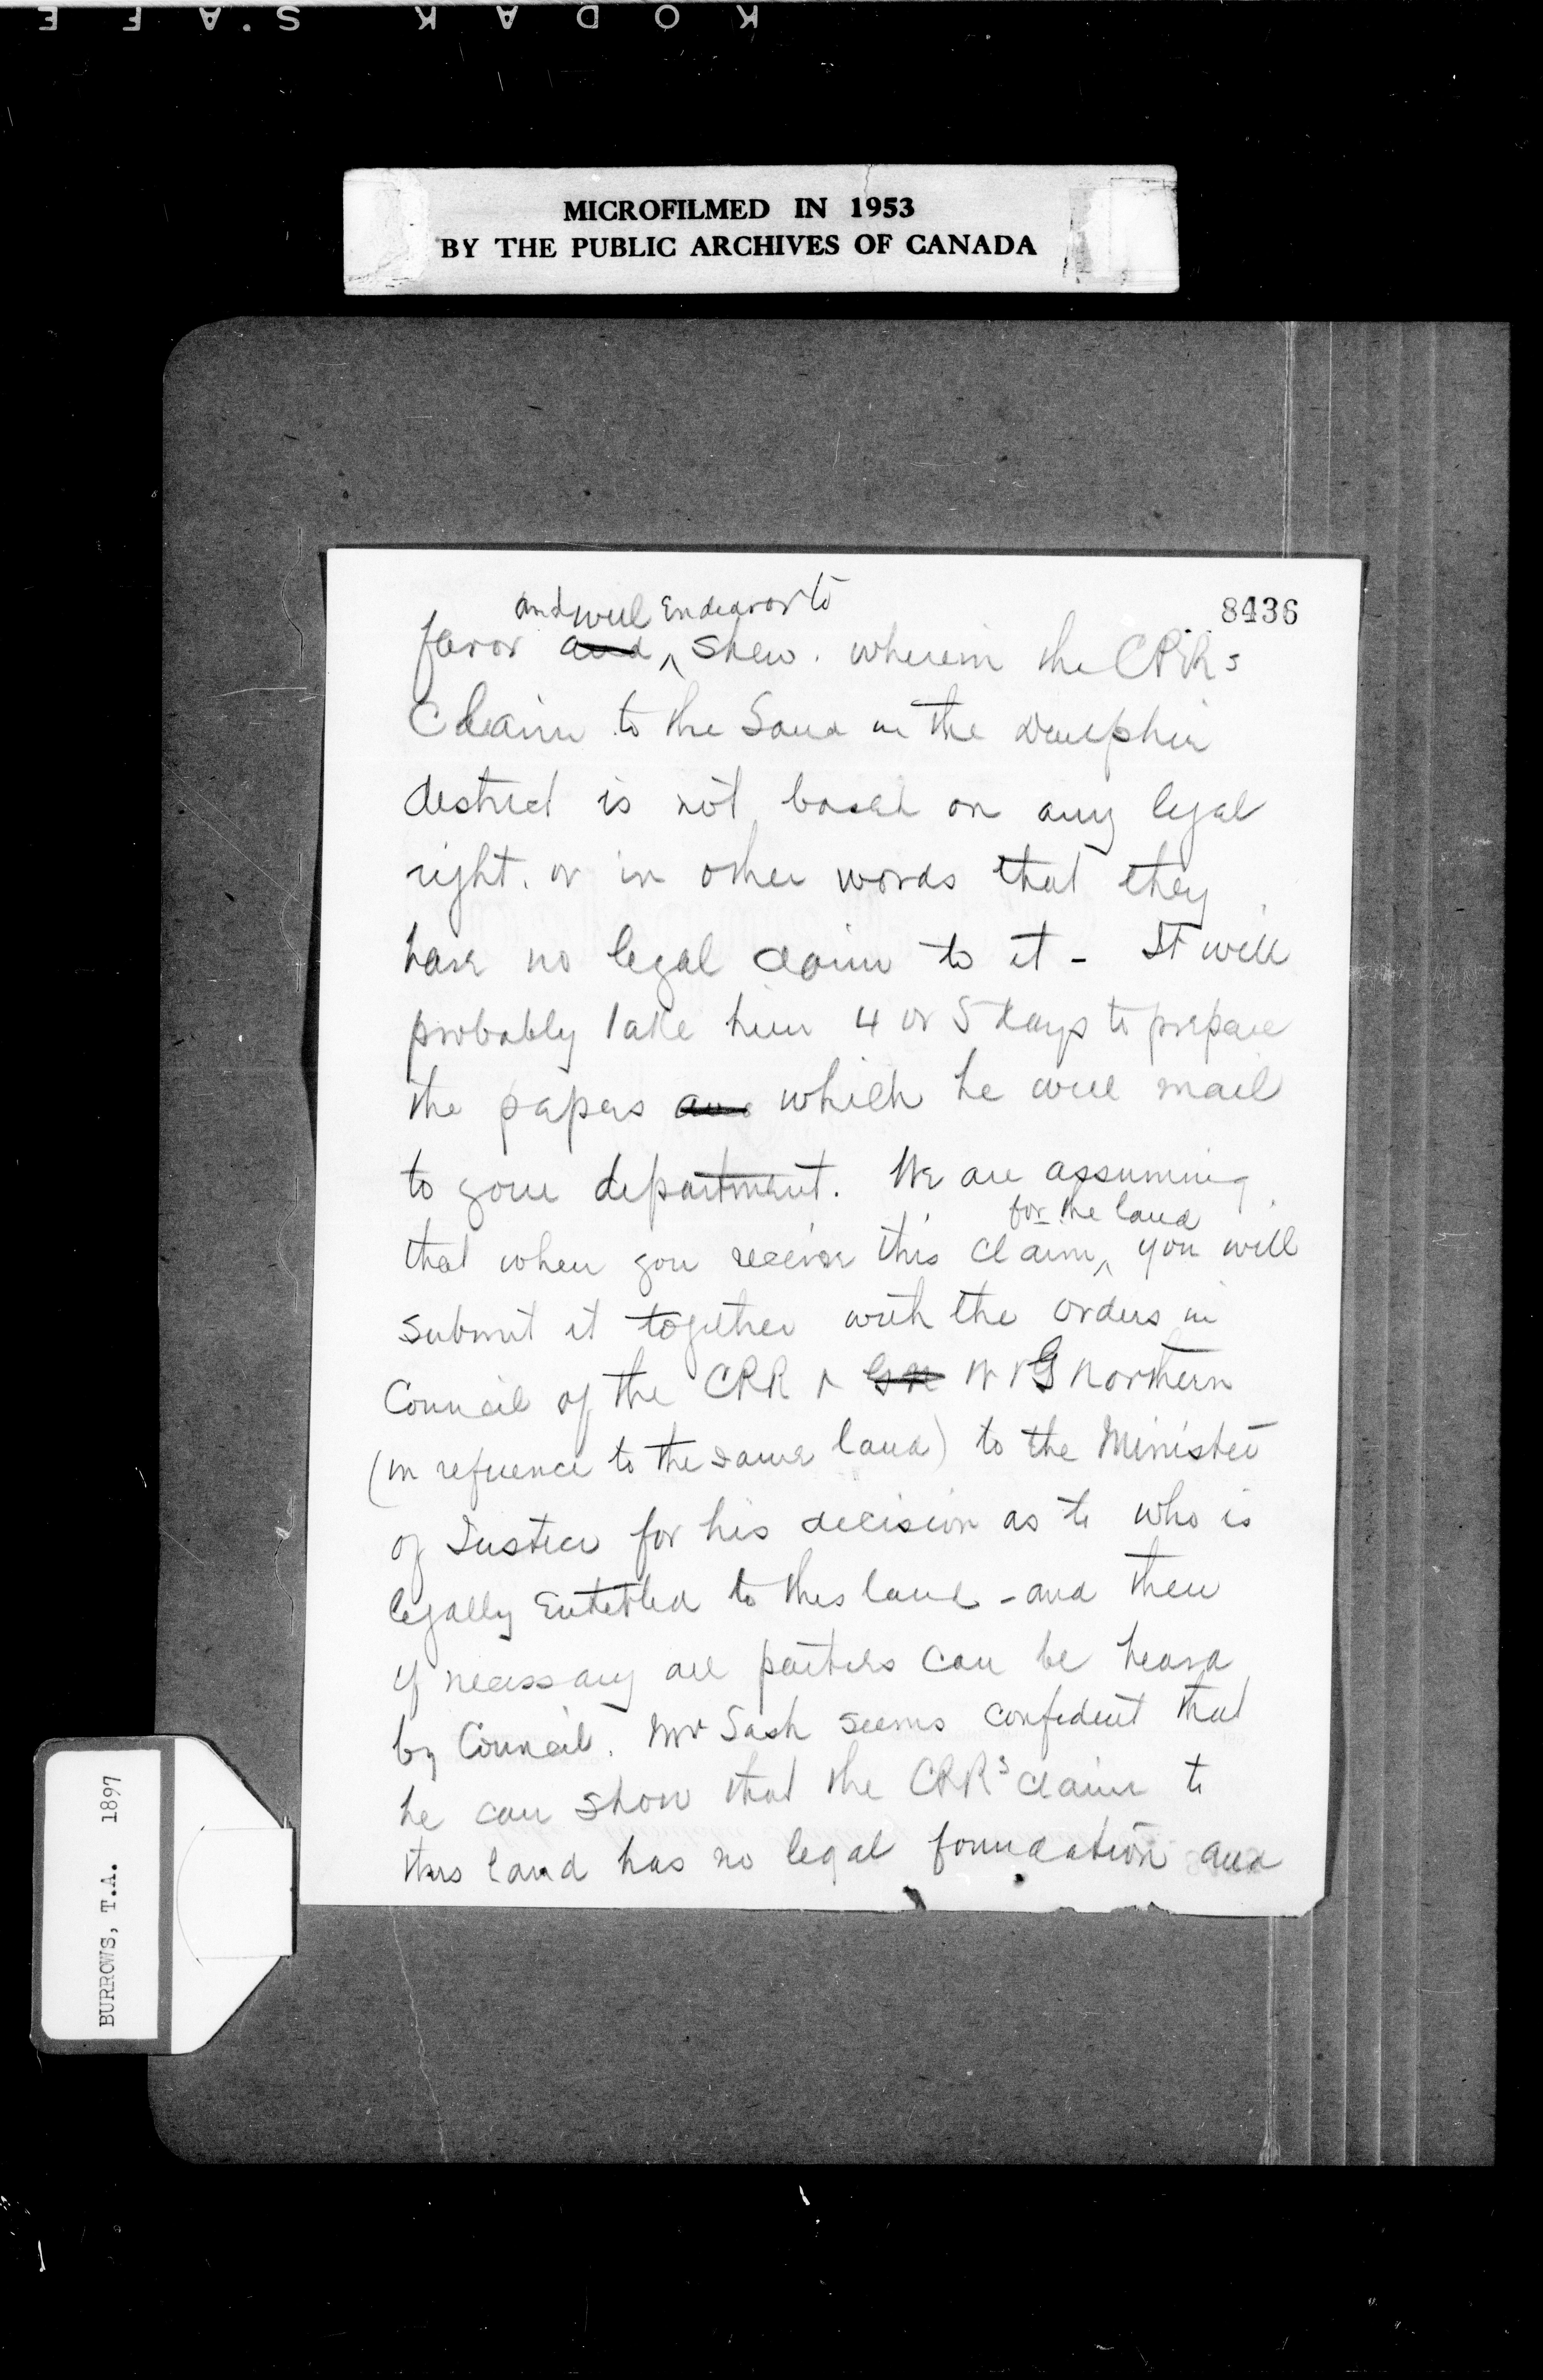 KODAK S.A F E
MICROFILMED IN 1953
BY THE PUBLIC ARCHIVES OF CANADA
8436
and will Endeavor to
favor and ^ shew. wherein the CPR s
Claim to the Land in the Dauphin
district is not based on any legal
right. or in other words that they
have no legal claim to it - It will
probably take him 4 or 5 days to prepare
the papers and which he will mail
to your department. We are assuming
for the land
that when you receive this claim ^ you will
submit it together with the orders in
Council of the CPR & GN W & G Northern
(in reference to the same land) to the Minister
of Justice for his decision as to who is
legally Entitled to this land - and then
if necessary all parties can be heard
by Council. Mr Lash seems confident that
he can show that the CPRs claim to
this land has no legal foundation and
BURROWS, T.A. 1897